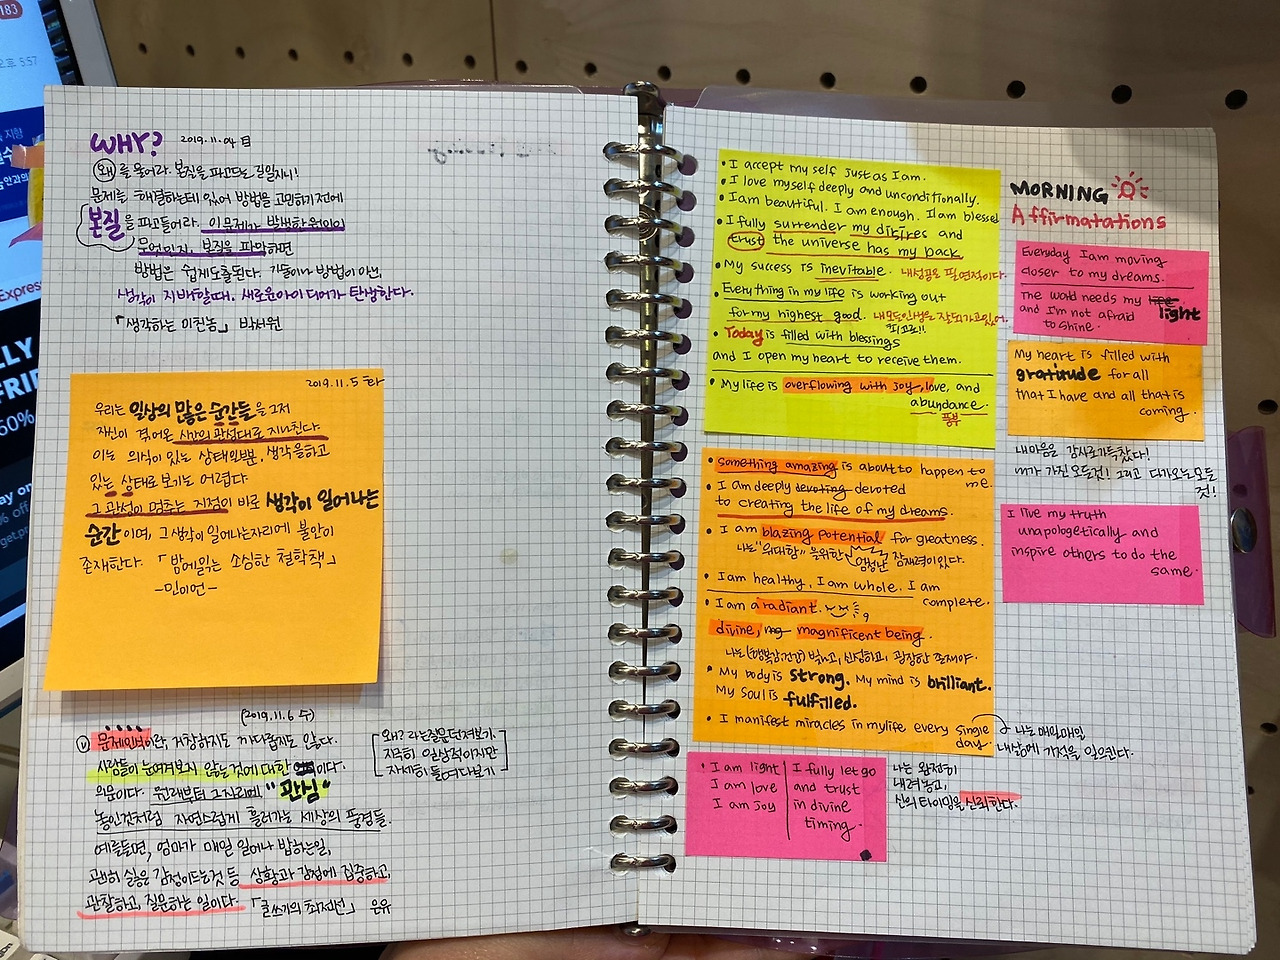 183
오후 5:57
지향
Express
LLY
FRI
60%
ay on
% off
get.pr
WHY? 2019.11.04 월
왜를 물어라. 본질을 파고드는 길일지니!
문제를 해결하는데 있어 방법을 고민하기 전에
본질을 파고들어라. 이 문제가 발생한 원인이
무엇인지, 본질을 파악하면
방법은 쉽게 도출된다. 기술이나 방법이 아닌,
생각이 지배할때, 새로운 아이디어가 탄생한다.
「생각하는 미친놈」 박서원
2019.11.5 화
우리는 일상의 많은 순간들을 그저
자신이 겪어온 시간의 관성대로 지나친다.
이는 의식이 있는 상태일뿐, 생각을하고
있는 상태로 보기는 어렵다.
그 관성이 멈추는 지점이 바로 생각이 일어나는
순간이며, 그 생각이 일어나는자리에 불안이
존재한다. 「밤에읽는 소심한 철학책」
-민이언-
(2019.11.6 수)
문제의식이란, 거창하지도 까다롭지도 않다.
사람들이 눈여겨보지 않는 것에 대한 이다.
의문이다. 원래부터 그자리에 "관심"
놓인것처럼 자연스럽게 흘러가는 세상의 풍경들.
예를들면, 엄마가 매일 일어나 밥하는일,
괜히 싫은 감정이드는것 등 상황과 감정에 집중하고,
관찰하고, 질문하는 일이다. 「글쓰기의 최전선」 은유
왜? 라는질문던져보기.
지극히 일상적이지만
자세히 들여다보기
• I accept my self just as I am.
• I love myself deeply and unconditionally.
• I am beautiful. I am enough. I am blessed
• I fully surrender my disires and
trust the universe has my back
• My success is inevitable. 내성공은 필연적이다.
• Everything in my life is working out
for my highest good. 내모든인생은 잘되가고있어.
최고로!!
• Today is filled with blessings
and I open my heart to receive them.
• My life is overflowing with joy, love, and
abundance.
풍부
• Something amazing is about to happen to
me.
• I am deeply devoting devoted
to creating the life of my dreams.
• I am blazing potential for greatness.
나는 "위대함"을위한 엄청난 잠재력이있다.
• I am healthy, I am whole. I am
complete.
• I am a radiant.
divine, mg magnificent being.
나는(행복감,건강) 빛나고, 신성하고, 굉장한 존재야.
• My body is strong. My mind is brilliant.
My soul is fulfilled.
• I manifest miracles in my life every single
day. 나는매일매일,
내삶에 기적을 일으킨다.
• I am light
I am love
I am joy
I fully let go
and trust
in divine
timing.
나는 완전히
내려놓고,
신의타이밍을 신뢰한다.
MORNING
Affirmatations
Everyday I am moving
closer to my dreams.
The world needs my life light
and I'm not afraid
to shine.
My heart is filled with
gratitude for all
that I have and all that is
coming.
내마음은 감사로가득찼다!
내가 가진모든것! 그리고 다가오는모든
것!
I live my truth
unapologetically and
inspire others to do the
same.